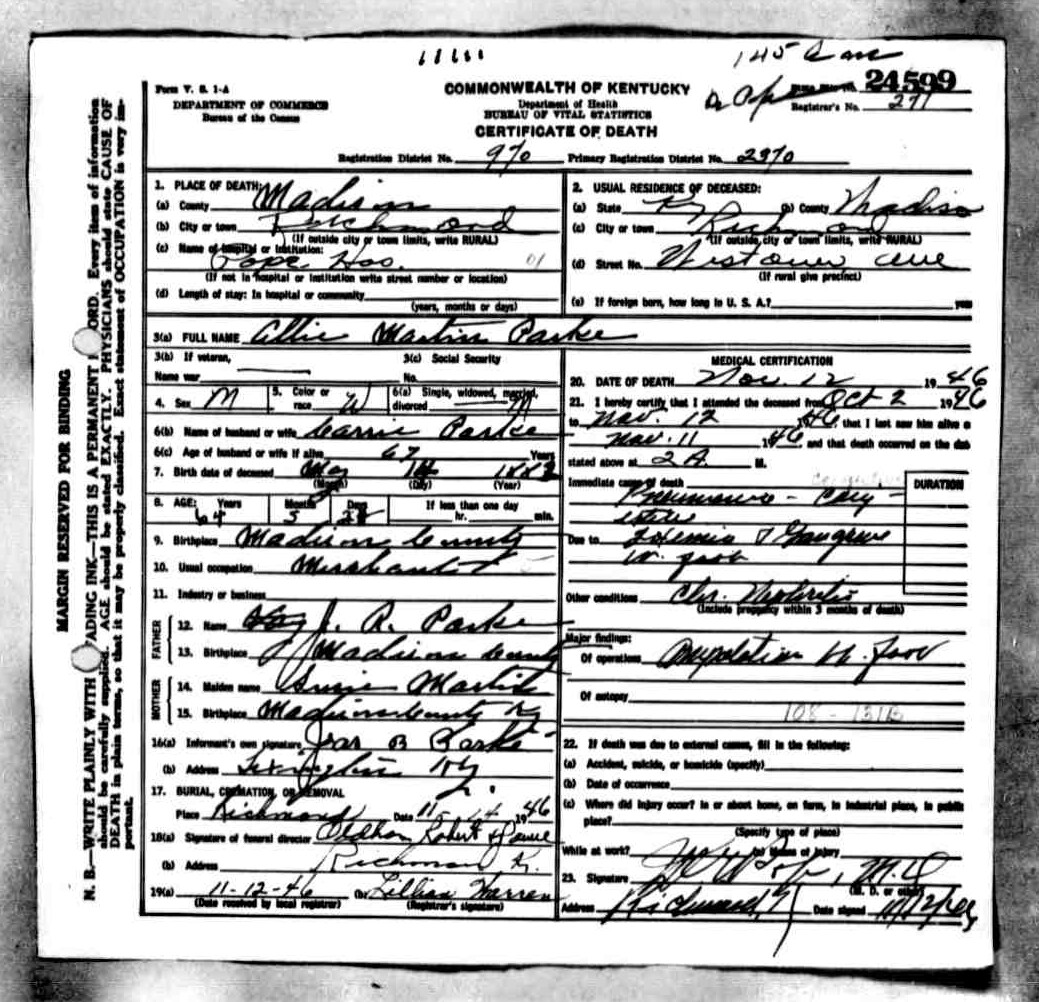 145
24599
Form V. S. 1-A
DEPARTMENT OF COMMERCE
Bureau of the Census
COMMONWEALTH OF KENTUCKY
Department of Health
BUREAU OF VITAL STATISTICS
CERTIFICATE OF DEATH
Registrar's No. 271
Registration District No. 970 Primary Registration District No. 2970
MARGIN RESERVED FOR BINDING
N. B.—WRITE PLAINLY WITH ADING INK—THIS IS A PERMANENT ORD. Every item of information
should be carefully supplied. AGE should be stated EXACTLY. PHYSICIANS should state CAUSE OF
DEATH in plain terms, so that it may be properly classified. Exact statement of OCCUPATION is very im-
portant.
1. PLACE OF DEATH:
(a) County Madison
(b) City or town Richmond
(If outside city or town limits, write RURAL)
(c) Name of hospital or Institution:
Pope Hos. 01
(If not in hospital or institution write street number or location)
(d) Length of stay: In hospital or community
(years, months or days)
2. USUAL RESIDENCE OF DECEASED:
(a) State Ky (b) County Madison
(c) City or town Richmond
(If outside city or town limits, write RURAL)
(d) Street No. Westover Ave
(If rural give precinct)
(e) If foreign born, how long in U. S. A.? years
3(a) FULL NAME Allie Martin Parke
3(b) If veteran,
Name war
3(c) Social Security
No.
4. Sex M 5. Color or race W 6(a) Single, widowed, married, divorced M
6(b) Name of husband or wife Carrie Parke
6(c) Age of husband or wife if alive 67 Years
7. Birth date of deceased May 14 1882
(Month) (Day) (Year)
8. AGE: Years Months Days If less than one day
64 5 28 hr. min.
9. Birthplace Madison County
10. Usual occupation Merchant
11. Industry or business
FATHER
12. Name J. R. Parke
13. Birthplace Madison County
MOTHER
14. Maiden name Susie Martin
15. Birthplace Madison County Ky
16(a) Informant's own signature Jas B Parke
(b) Address Lexington Ky
17. BURIAL, CREMATION, OR REMOVAL
Place Richmond Date 11-14 1946
18(a) Signature of funeral director Oldham, Roberts & Powell
(b) Address Richmond K.
19(a) 11-12-46 (b) Lillian Warren
(Date received by local registrar) (Registrar's signature)
MEDICAL CERTIFICATION
20. DATE OF DEATH Nov 12 1946
21. I hereby certify that I attended the deceased from Oct 2 1946
to Nov. 12 1946, that I last saw him alive o
Nov. 11 1946, and that death occurred on the date
stated above at 2 A. M.
Immediate cause of death DURATION
Pneumonia - Cong-
Due to & Gangrene
Other conditions Chr. Nephritis
(Include pregnancy within 3 months of death)
Major findings:
Of operations Amputation
Of autopsy
108 - 131B
22. If death was due to external causes, fill in the following:
(a) Accident, suicide, or homicide (specify)
(b) Date of occurrence
(c) Where did injury occur? In or about home, on farm, in industrial place, in public
place?
(Specify type of place)
While at work? (e) Means of Injury
23. Signature M.D
(M. D. or other)
Address Richmond, Ky Date signed 11/12/46